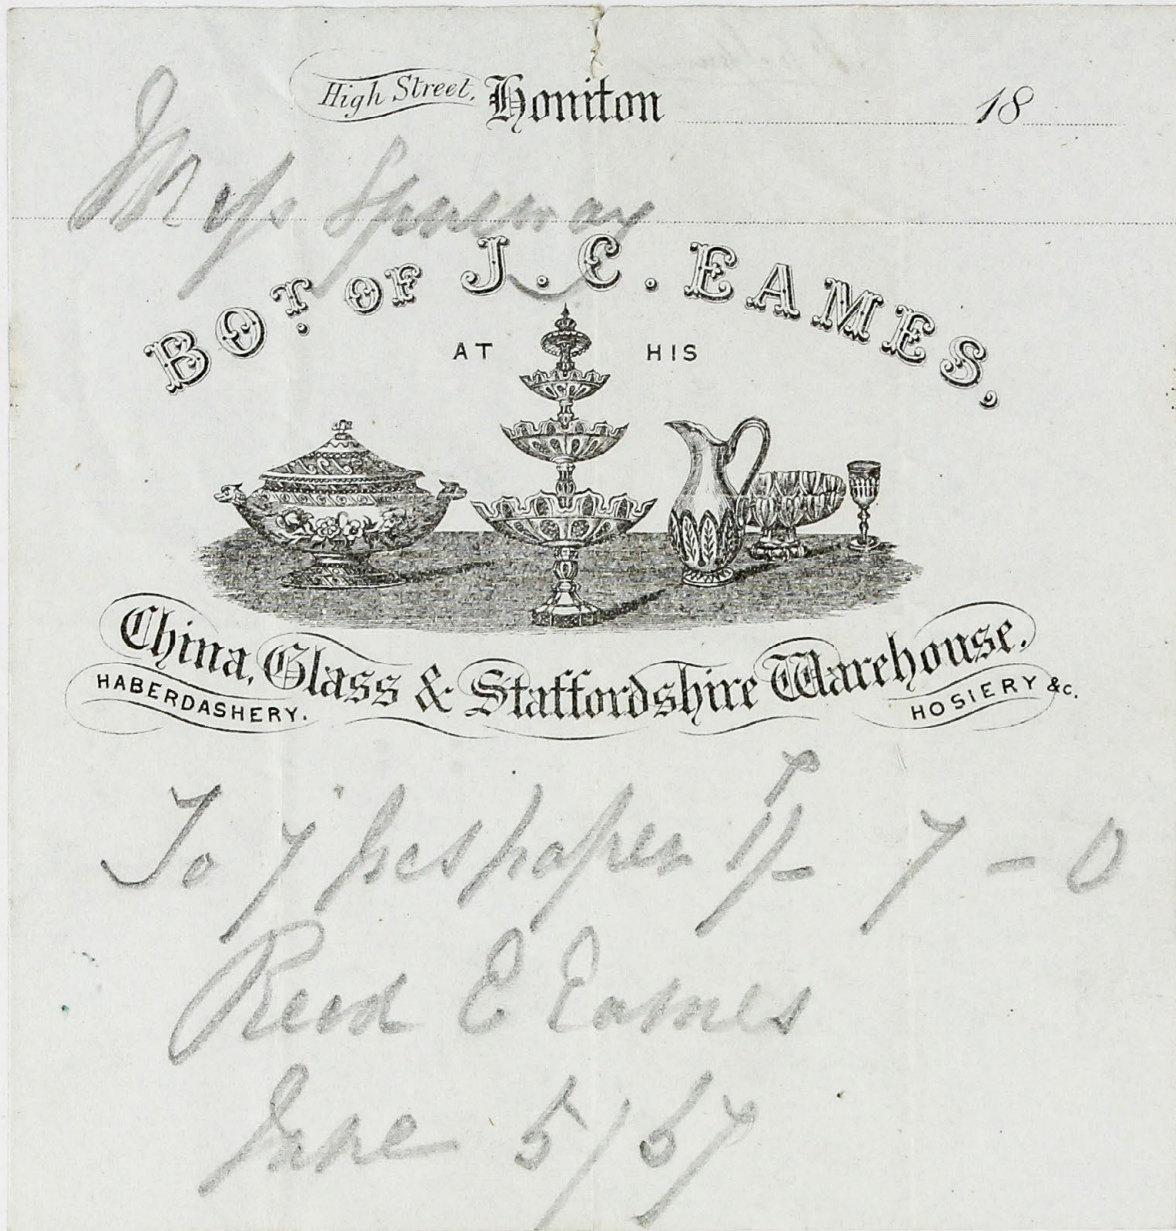 High Street, Honiton 18
BOT. OF J. C. EAMES,
AT HIS
China, Glass & Staffordshire Warehouse.
HABERDASHERY. HOSIERY &c.
To 7 pcs paper 1/- 7 - 0
Recd E Eames
June 5 / 57